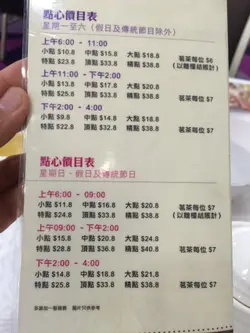 點心價目表
星期一至六（假日及傳統節日除外）
上午6:00 - 11:00
小點 $10.8 中點 $15.8 大點 $18.8 茗茶每位 $6
特點 $23.8 頂點 $33.8 (以離檯結賬計)
上午11:00 - 下午2:00
小點 $13.8 中點 $17.8 大點 $20.8
特點 $25.8 頂點 $33.8 茗茶每位 $7
下午2:00 - 4:00
小點 $9.8 中點 $14.8 大點 $18.8
特點 $22.8 頂點 $32.8 茗茶每位 $7
點心價目表
星期日、假日及傳統節日
上午6:00 - 09:00
小點 $11.8 中點 $16.8 大點 $20.8 茗茶每位 $7
特點 $24.8 頂點 $33.8 (以離檯結賬計)
上午09:00 - 下午2:00
小點 $15.8 中點 $20.8 大點 $24.8
特點 $28.8 頂點 $36.8 茗茶每位 $7
下午2:00 - 4:00
小點 $14.8 中點 $18.8 大點 $21.8
特點 $25.8 頂點 $33.8 茗茶每位 $7
多謝加一服務費 圖片只供參考